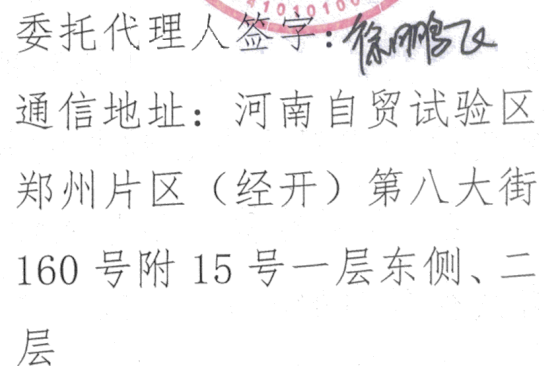 41010100
委托代理人签字:徐鹏飞
通信地址：河南自贸试验区
郑州片区（经开）第八大街
160号附15号一层东侧、二
层